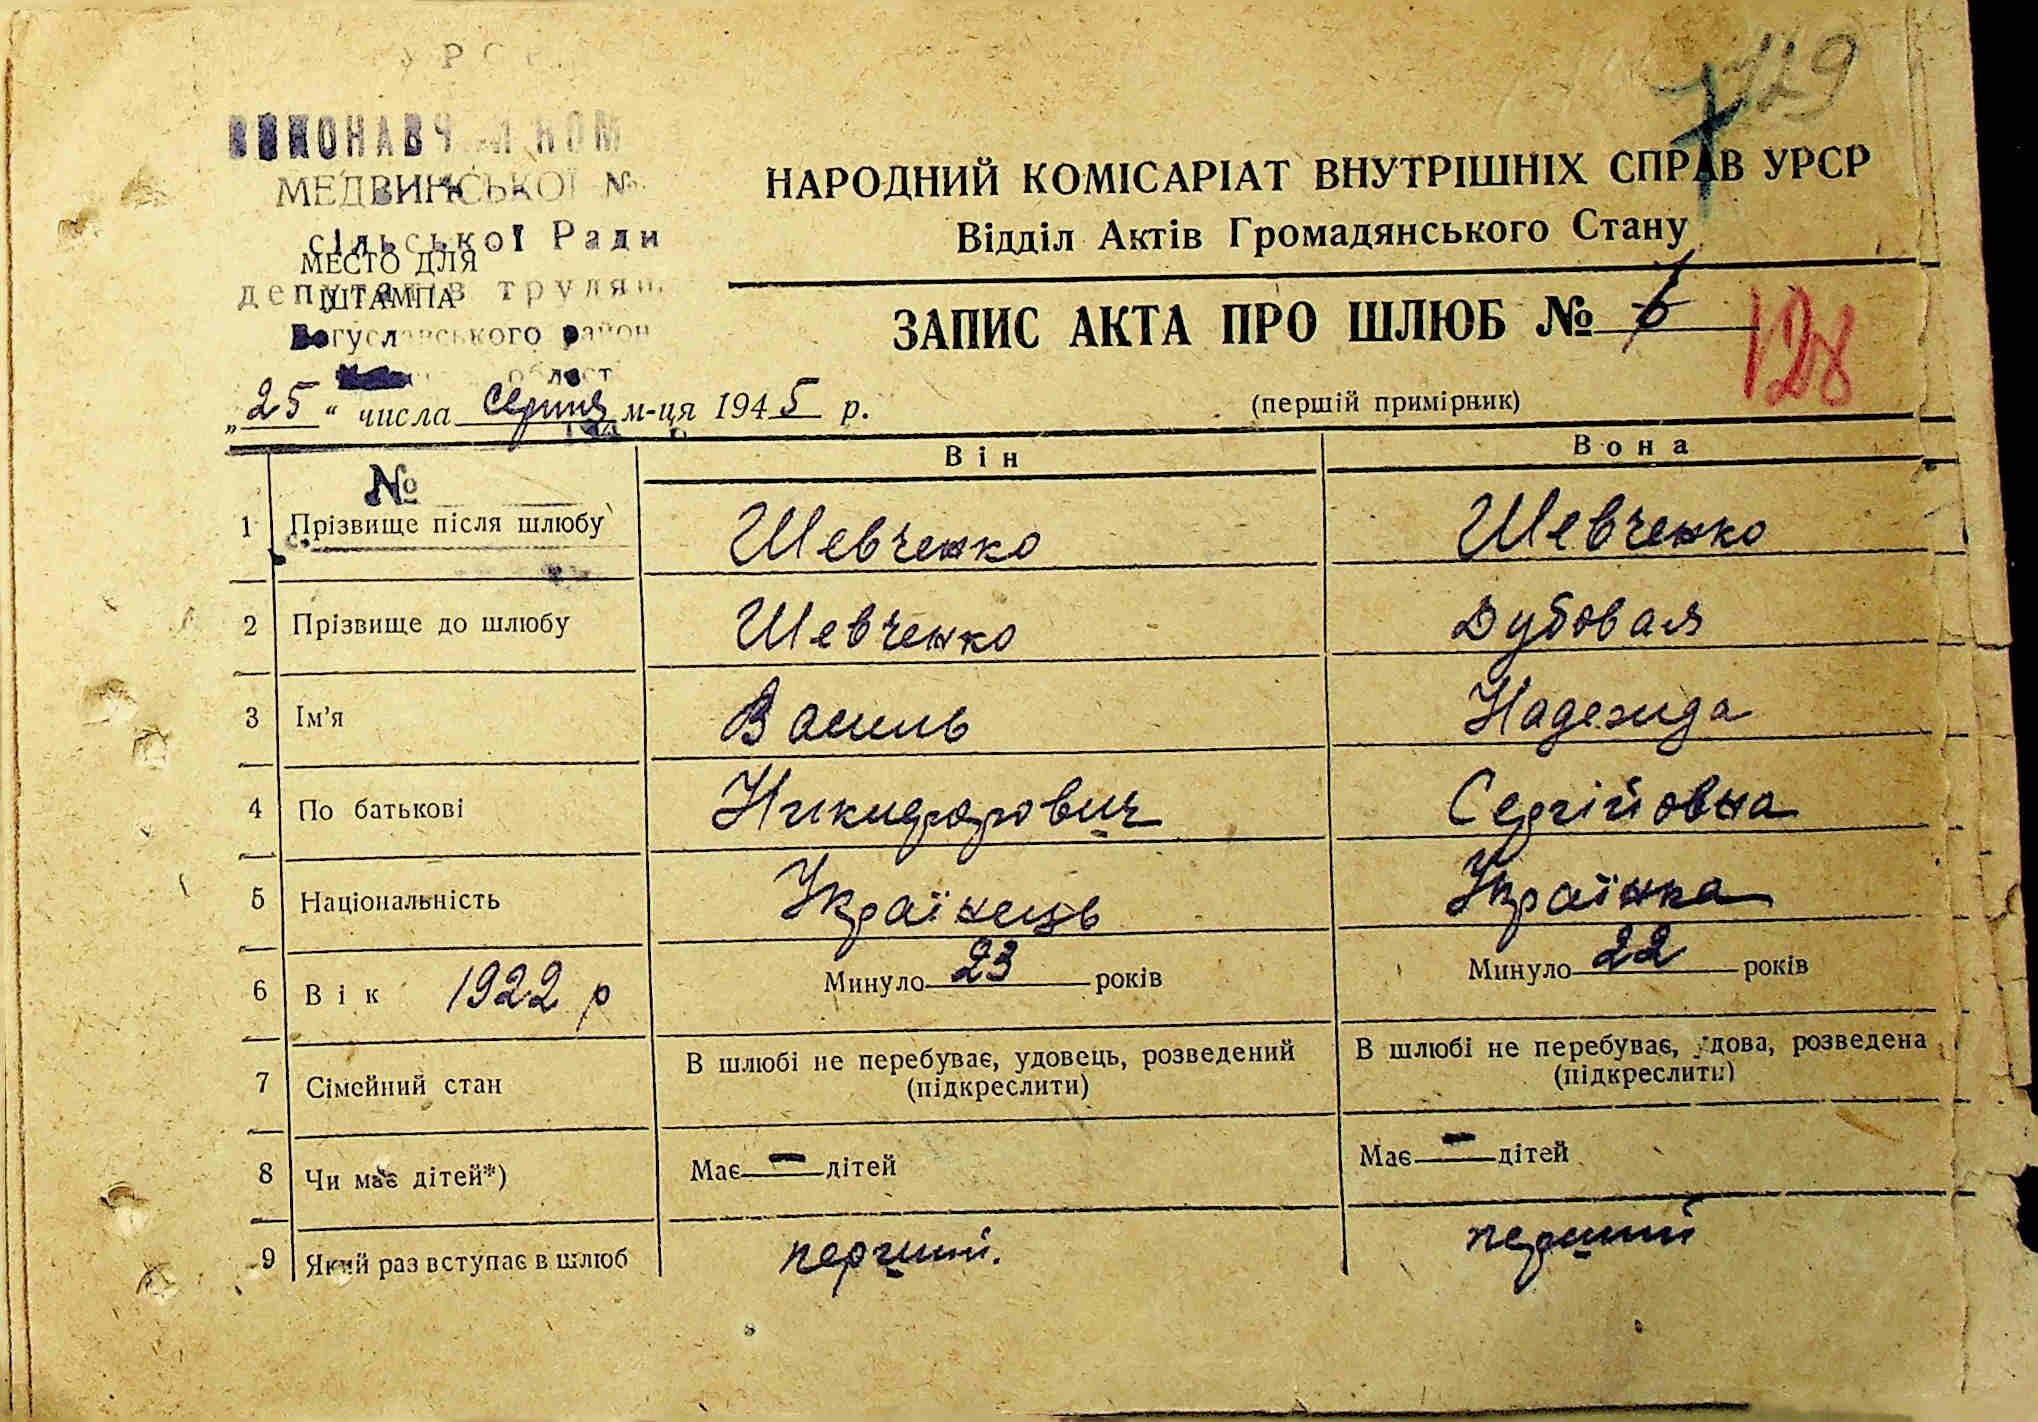 УРСР
129
ВИКОНАВЧ КОМ
МЕДВИНСЬКОЇ №
сільської Ради
МЕСТО ДЛЯ
депутатів трудящ.
ШТАМПА
Богуславського район
област
НАРОДНИЙ КОМІСАРІАТ ВНУТРІШНІХ СПРАВ УРСР
Відділ Актів Громадянського Стану
ЗАПИС АКТА ПРО ШЛЮБ № 6
128
„25“ числа серпня м-ця 1945 р.
(першій примірник)
Він Вона
№
1 Прізвище після шлюбу Шевченко Шевченко
2 Прізвище до шлюбу Шевченко Дубовая
3 Ім’я Василь Надежда
4 По батькові Никифорович Сергійовна
5 Національність Українець Українка
6 Вік 1922 р Минуло 23 років Минуло 22 років
7 Сімейний стан В шлюбі не перебуває, удовець, розведений (підкреслити) В шлюбі не перебуває, удова, розведена (підкреслити)
8 Чи має дітей*) Має — дітей Має — дітей
9 Який раз вступає в шлюб перший. перший